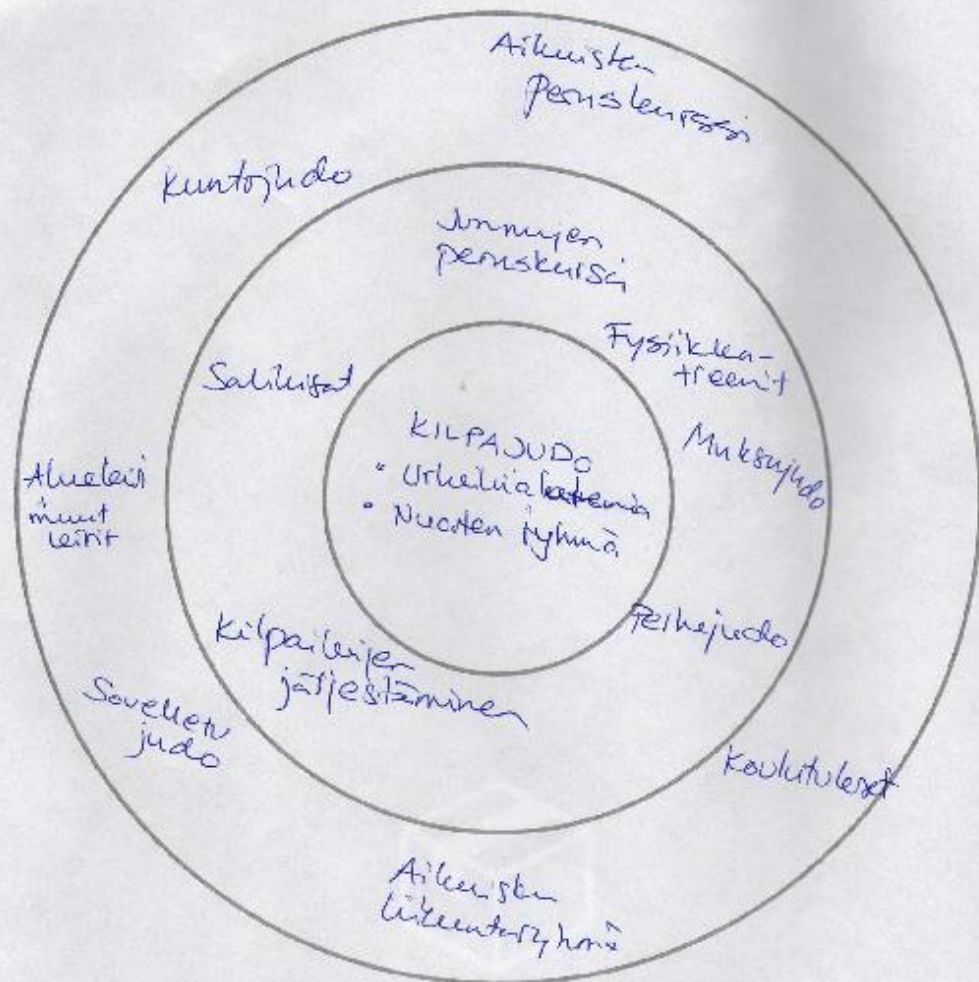 Aikuisten
peruskurssi
Kuntojudo
Junnujen
peruskurssi
Fysiikka-
treenit
Salikisat
Muksujudo
KILPAJUDO
• Urheiluakatemia
• Nuorten ryhmä
Alueleiri
muut
leirit
Perhejudo
Kilpailujen
järjestäminen
Sovellettu
judo
Koulutukset
Aikuisten
liikuntaryhmä